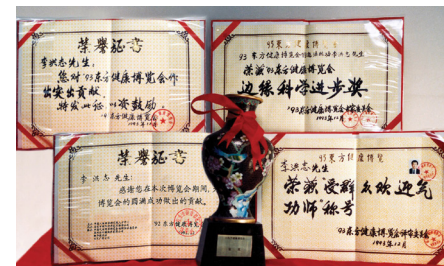 荣誉证书
李洪志先生:
您对'93东方健康博览会作
出突出贡献,
特发此证 以资鼓励。
'93东方健康博览会
1993年12月
荣获'93东方健康博览会
边缘科学进步奖
'93东方健康博览会评审委员会
1993年12月
荣誉证书
李洪志先生:
感谢您在本次博览会期间,
博览会的圆满成功做出的贡献。
'93东方健康博览会
'93东方健康博览
李洪志先生
荣获"受群众欢迎气
功师"称号
'93东方健康博览会评审委员会
1993年12月